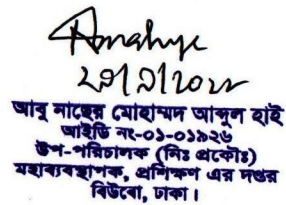 ২৯/৯/২০২২
আবু নাছের মোহাম্মদ আব্দুল হাই
আইডি নং-০১-০১৯২৬
উপ-পরিচালক (নিঃ প্রকৌঃ)
মহাব্যবস্থাপক, প্রশিক্ষণ এর দপ্তর
বিউবো, ঢাকা।